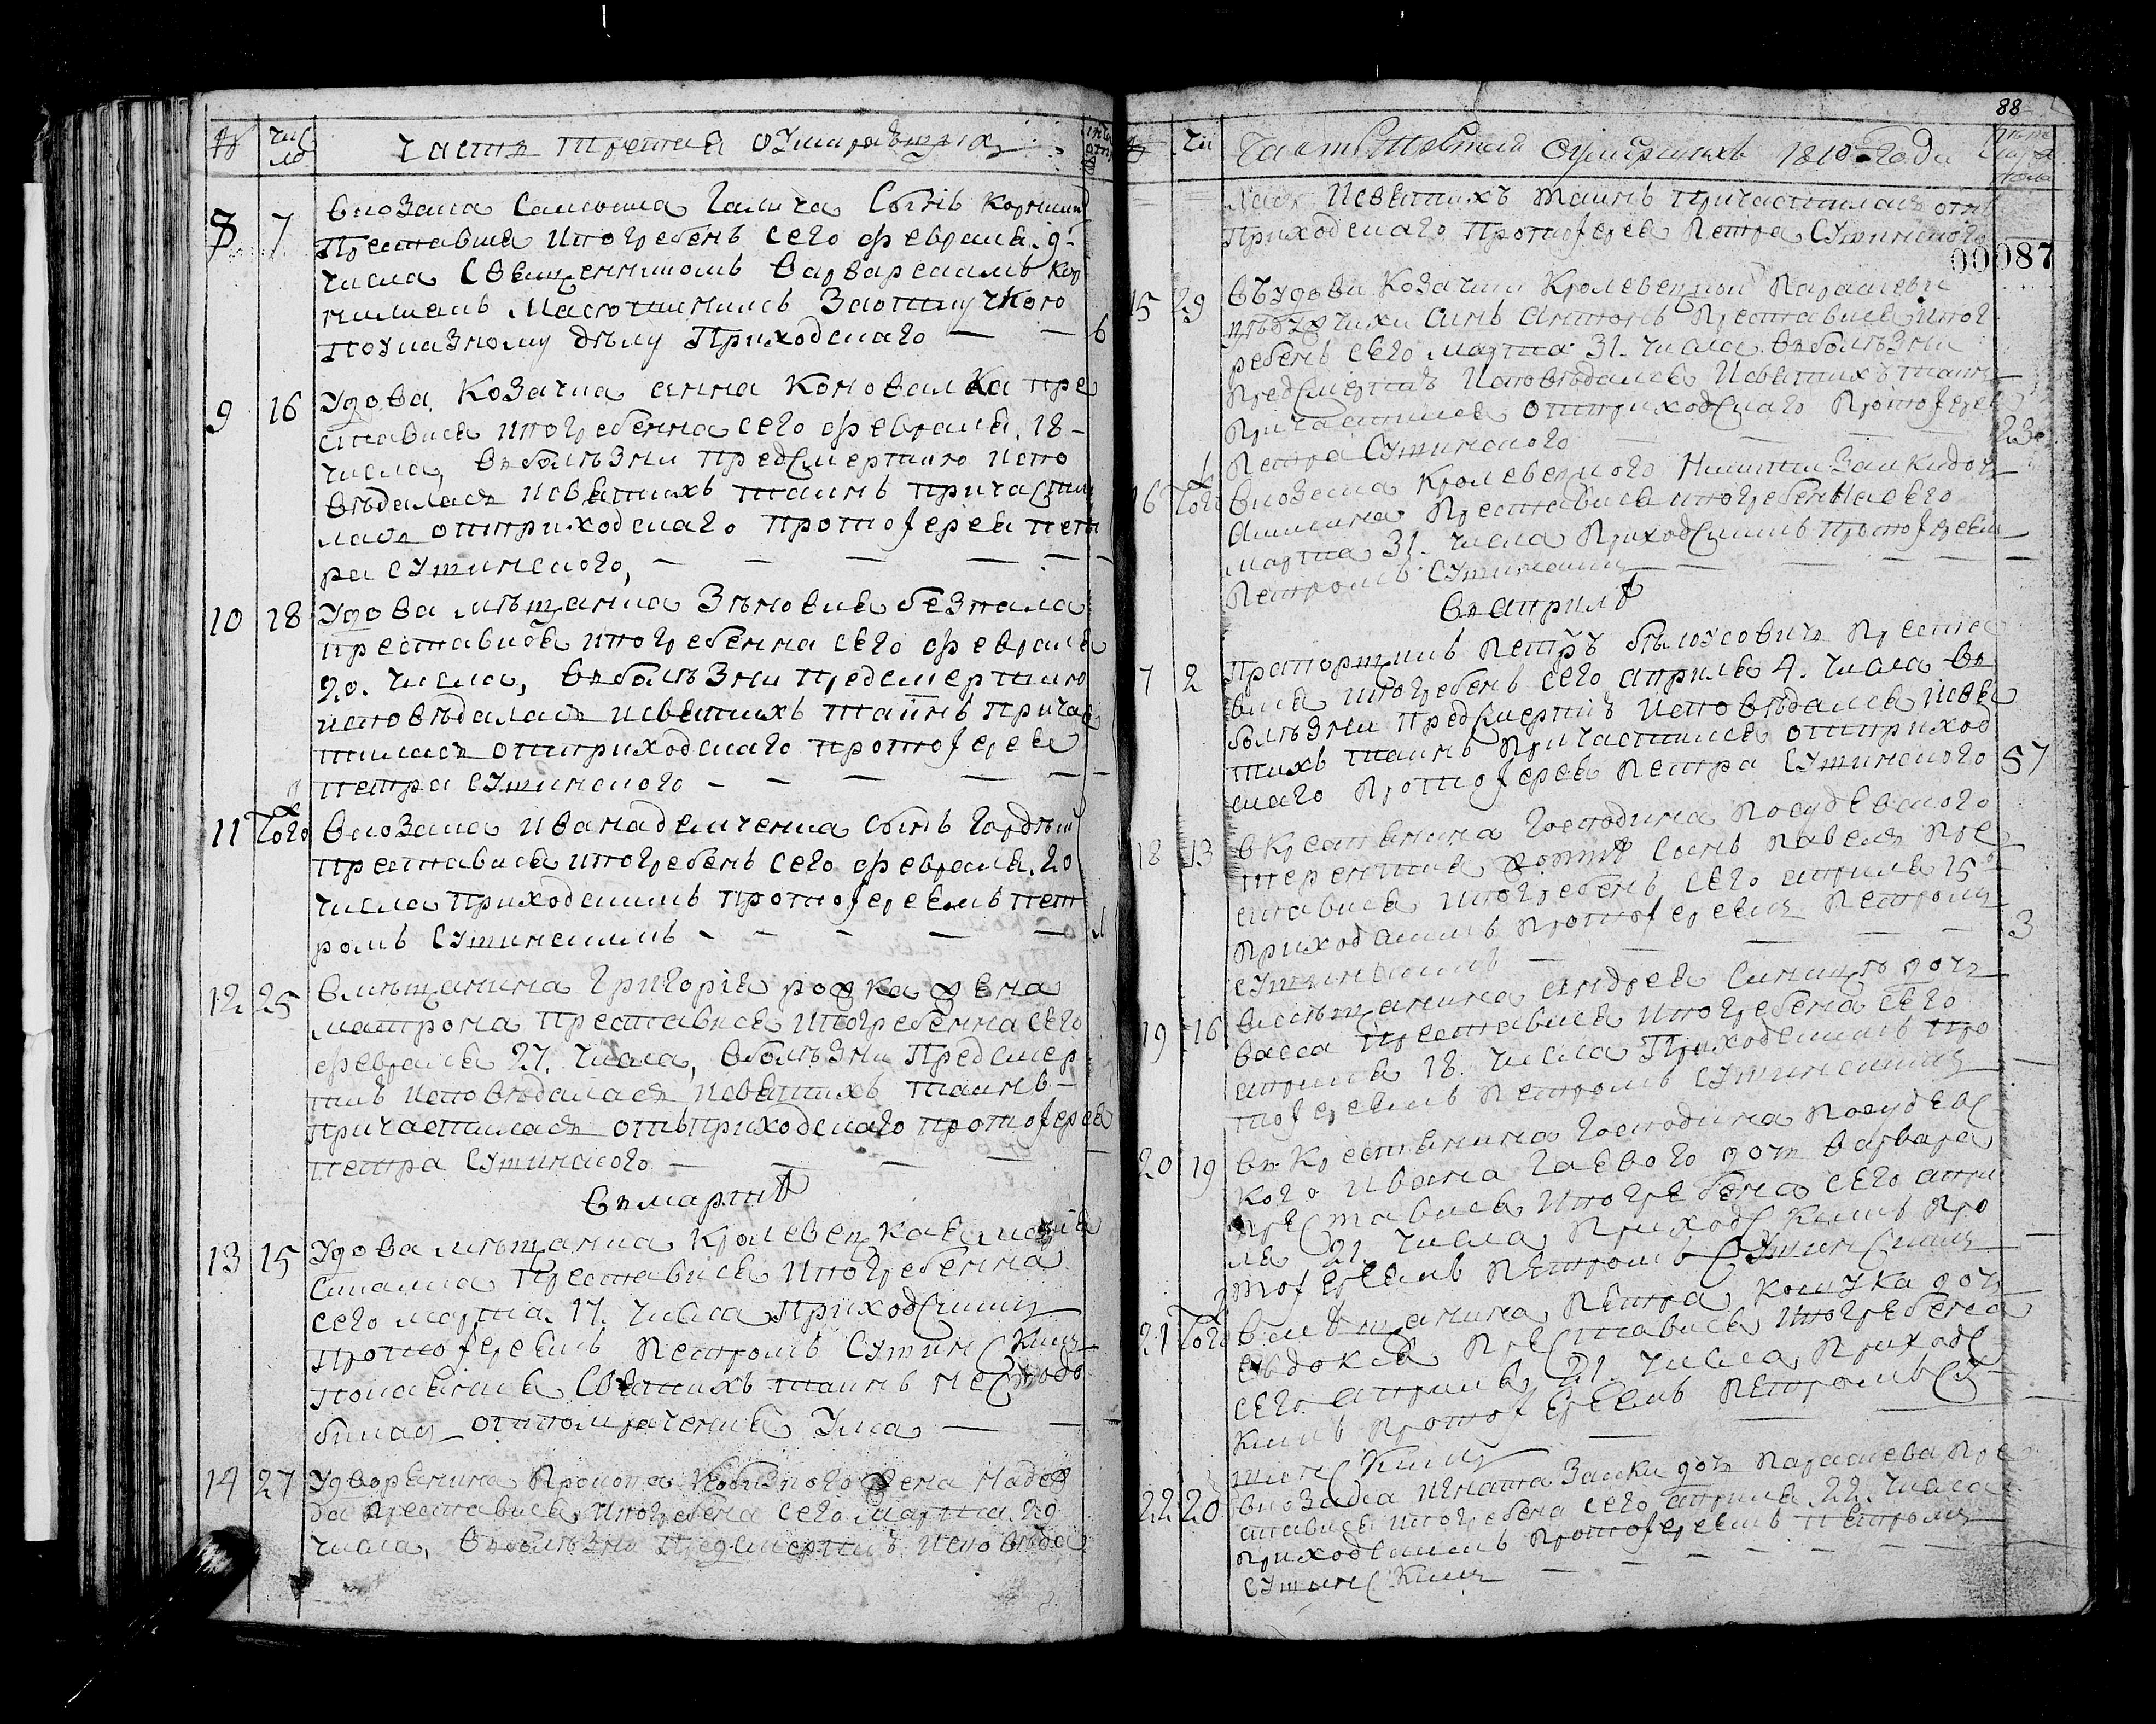 №
чис
ло
часть третия о умирающих
8 7 в козака Самоила Галича Сынъ Корнилий
Преставися и погребенъ сего февраля 9
числа Священникомъ Варварскимъ Кор
нилиемъ Мастинимъ за
по указному делу Приходского — — 6
9 16 Удова Козачка анна Коновалка пре
ставися и погребенна сего февраля 18
числа, въ болѣзни предсмертию испо
вѣдалася и святихъ таинъ причасти
лася отприходскаго протоіерея пет
ра Сутинского, — — — —
10 18 Удова мѣщанка Зѣновия безпала
преставися и погребенна сего февраля
20. числа, въ болѣзни предсмертию
исповѣдалася и святихъ таинъ причас
тилася отприходскаго протоіерея
петра Сутинского — — — — —
11 Того в козака Ивана демченка сынъ Гордѣй
преставися и погребенъ сего февраля 20
числа приходскимъ протоіереемъ пет
ромъ Сутинскимъ — — — — —
12 25 в мѣщанина Григорія рожка жена
матрона преставися и погребенна сего
февраля 27. числа, в болѣзни предсмер
тнѣ исповѣдалася и святихъ таинъ
причастилася отъ приходскаго протоіерея
петра Сутинского — — — —
въ мартѣ
13 15 Удова мѣщанка Кролевецкая марія
преставися и погребенна
сего марта 17. числа приходским
протоіереемъ Петромъ Сутинским
покаяния святихъ таинъ не сподо
билась отпомрачения ума — —
14 27 У дворянина Прокопа жена Надеж
да преставися и погребена сего марта 29
числа, въ болѣзни предсмертнѣ исповѣда
88
Часть Третья о умершихъ 1810 года
лася и святихъ таинъ причастилася отъ
приходскаго протоіерея Петра Сутинского
00087
15 29 въ удови козачки Кролевецкой Параскеви
синъ Антонъ преставися и пог
ребенъ сего марта 31. числа въ болѣзни
предсмертнѣ исповѣдался и святихъ таинъ
причастился отприходскаго протоіерея
Петра Сутинского — — — 23
16 Того в козака Кролевецкого Никити Заики дочь
Акилина преставися и погребенна сего
марта 31. числа приходскимъ протоіереемъ
Петромъ Сутинским — — — —
въ априлѣ
17 2 Прапорщикъ Петръ Билоусовичъ преста
вися и погребенъ сего априля 4. числа въ
болѣзни предсмертнѣ исповѣдался и свя
тихъ таинъ причастился отприход
скаго протоіерея Петра Сутинского 57
18 13 в крестянина Господина Посудевского
терентия сынъ Павелъ пре
ставися и погребенъ сего априля 15
приходскимъ протоіереемъ Петромъ
Сутинскимъ — — — — — 3
19 16 в мѣщанина андрея дочь
васса преставися и погребена сего
априля 18. числа приходскимъ про
тоіереемъ Петромъ Сутинскимъ —
20 19 въ крестянина Господина Посудевс
кого Ивана Гаевого дочь варвара
преставися и погребена сего апри
ля 21. числа, приходскимъ про
тоіереемъ Петромъ Сутинскимъ —
21 Того в мѣщанина Петра дочь
евдокия преставися и погребена
сего априля 21 числа, приходс
кимъ протоіереемъ Петромъ Су
тинскимъ — — —
22 20 в козака Игната Заики дочь Параскева пре
ставися и погребена сего априля 22. числа
приходскимъ протоіереемъ петромъ
Сутинскимъ — — — — — —